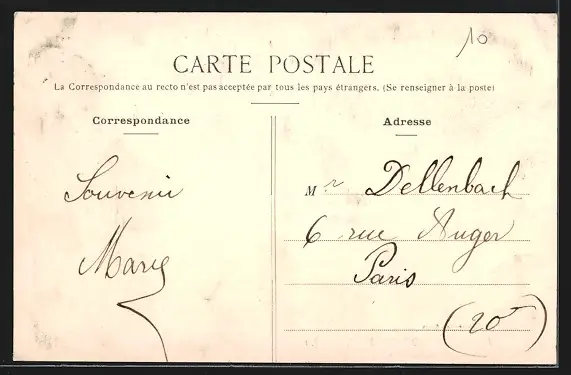 10
CARTE POSTALE
La Correspondance au recto n'est pas acceptée par tous les pays étrangers. (Se renseigner à la poste)
Correspondance
Souvenir
Marie
Adresse
Mr Dellenbach
6 rue Auger
Paris
(20e)